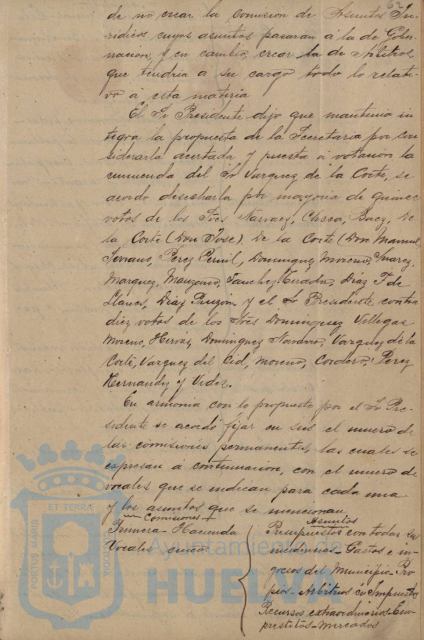 de no crear la Comision de Asuntos Ju-
ridicos cuyos asuntos pasaran á la de Gober-
nacion, y en cambio, crear la de Arbitrios,
que tendria á su cargo todo lo relati-
vo á esta materia
El Sr Presidente dijo que mantenia in
tegra la propuesta de la Secretaria por con
siderarla acertada y puesta á votacion la
enmienda del Sr Vazquez de la Corte, se
acordó desecharla por mayoria de quince
votos de los Sres Narvaez, Checa, Baez, de
la Corte (Don Jose) de la Corte (Don Manuel
Serrano, Perez Dominguez Moreno, Suarez,
Marquez, Manzano, Sanchez Diaz F. de
Llanos, Diaz Pinzon y el Sr Presidente contra
diez votos de los Sres Dominguez Villegas
Moreno, Hervas, Dominguez Vazquez de la
Corte, Vazquez del Cid, Moreno, Cordero, Perez
Hernandez y Vides.
En armonia con lo propuesto por el Sr Pre-
sidente se acordó fijar en seis el número de
las comisiones permanentes, las cuales se
expresan á continuacion, con el número de
vocales que se indican para cada una
y los asuntos que se mencionan.
Comisiones Asuntos
Primera - Hacienda Presupuestos con todas sus
Vocales cinco incidencias - Gastos é in-
gresos del Municipio - Pro-
pios - Arbitrios é Impuestos
Recursos extraordinarios - Em-
prestitos - Mercados
ET TERRA
PORTUS MARIS
Ayuntamiento de
HUELVA